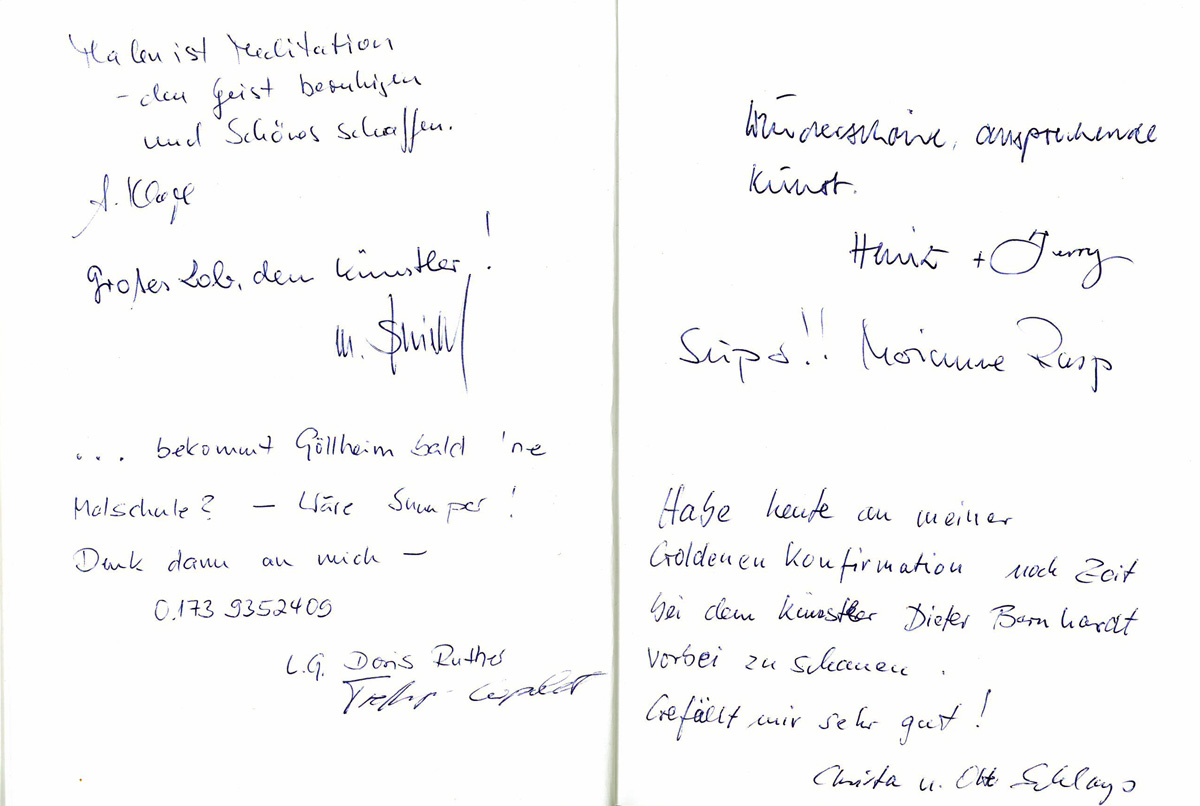 Malen ist Meditation
- den Geist beruhigen
und Schönes schaffen.
A. Klag
Großes Lob, den Künstler!
M.
... bekommt Göllheim bald 'ne
Malschule? – Wäre Suuuper!
Denk dann an mich –
0173 9352409
L.G. Doris Ruther
Wunderschöne, ansprechende
Kunst.
Heinz + Gerry
Super!! Marianne Rasp
Habe heute an meiner
Goldenen Konfirmation noch Zeit
bei dem Künstler Dieter Bernhardt
vorbei zu schauen.
Gefällt mir sehr gut!
Christa u. Otto